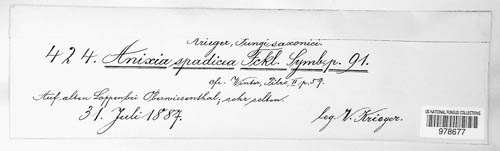 Krieger, Fungi saxonici.
424. Anixia spadicea Fckl. Symb. p. 91.
cfr. Winter, Pilze, II p. 59.
Auf alten Lappen bei Oberwiesenthal, sehr selten.
31. Juli 1887.
leg. W. Krieger.
US NATIONAL FUNGUS COLLECTIONS
978677